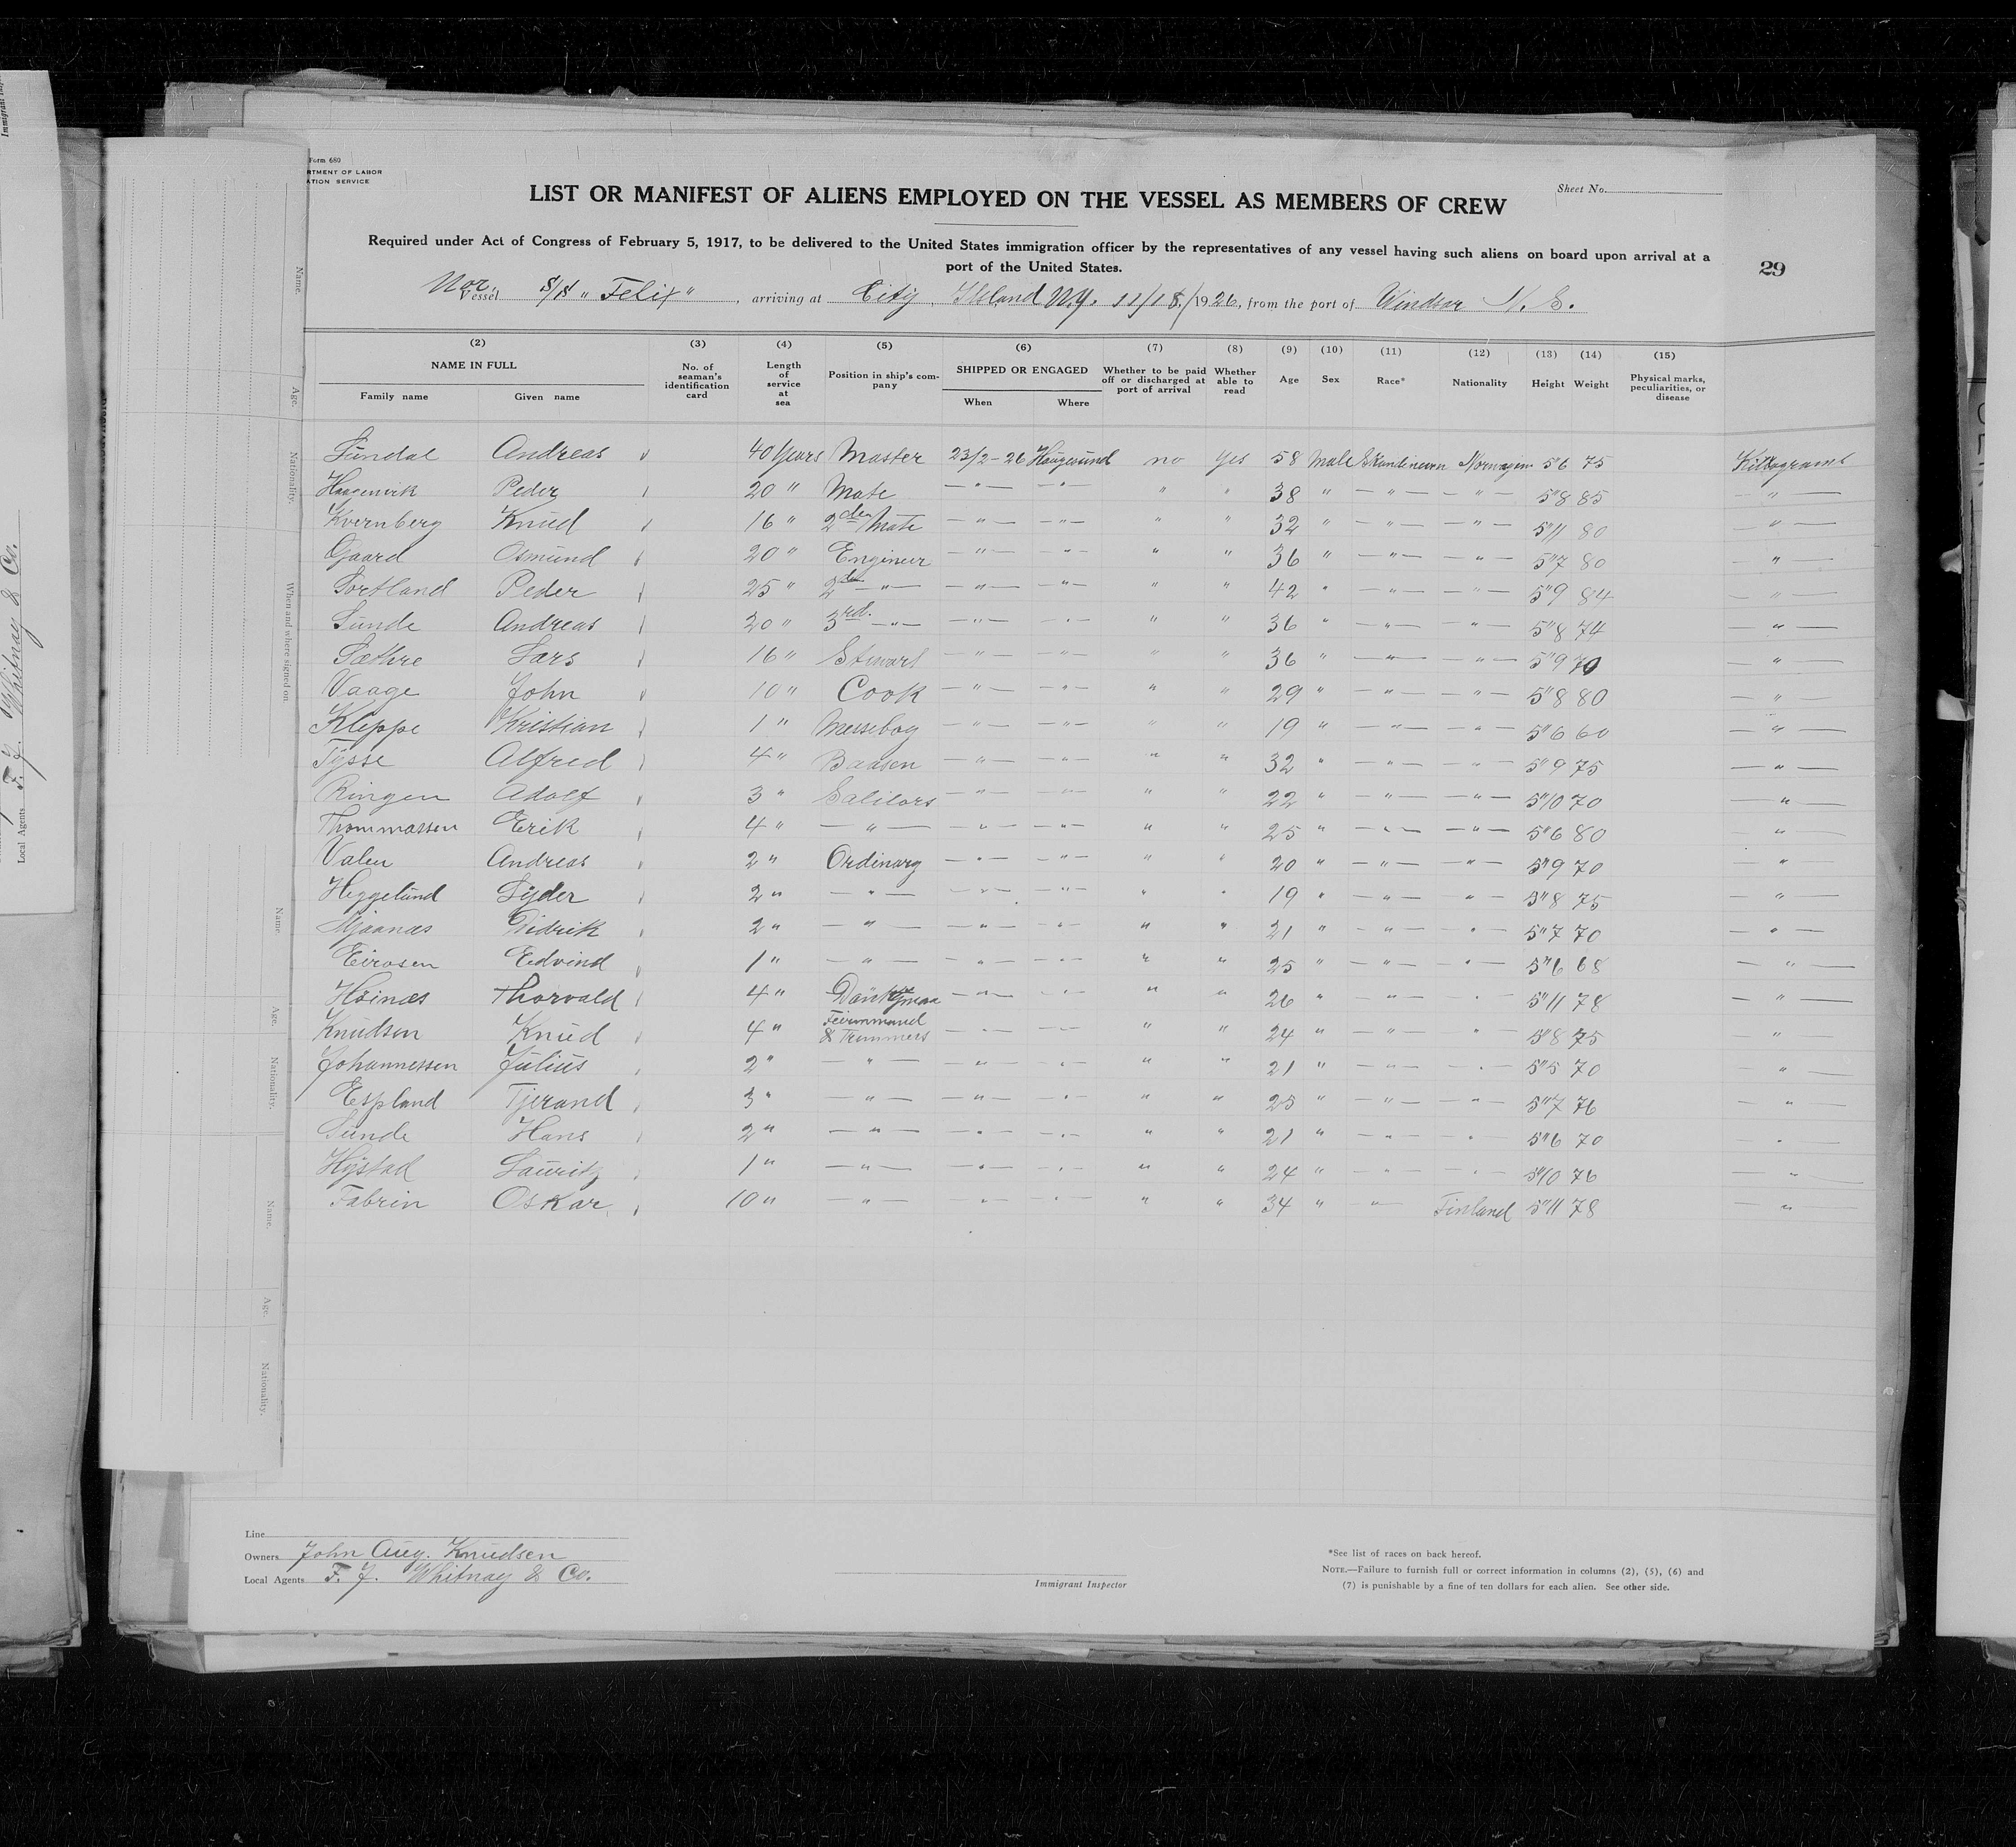 Form 680
RTMENT OF LABOR
ATION SERVICE
Sheet No.
LIST OR MANIFEST OF ALIENS EMPLOYED ON THE VESSEL AS MEMBERS OF CREW
Required under Act of Congress of February 5, 1917, to be delivered to the United States immigration officer by the representatives of any vessel having such aliens on board upon arrival at a
port of the United States.
29
Nor. Vessel S/S "Felix", arriving at City Island N.Y. 11/18/1926, from the port of Windsor N.S.
(2) (3) (4) (5) (6) (7) (8) (9) (10) (11) (12) (13) (14) (15)
NAME IN FULL No. of seaman's identification card Length of service at sea Position in ship's company SHIPPED OR ENGAGED Whether to be paid off or discharged at port of arrival Whether able to read Age Sex Race* Nationality Height Weight Physical marks, peculiarities, or disease
Family name Given name When Where
Sundal Andreas 40 years Master 23/2-26 Haugesund no yes 58 Male Skandinaven Norwegian 5"6 75 Killograms
Haagenvik Peder 20 " Mate — " — — " — " " 38 " — " — — " — 5"8 85 — " —
Kvernberg Knud 16 " 2den Mate — " — — " — " " 32 " — " — — " — 5"11 80 — " —
Gaard Osmund 20 " Engineer — " — — " — " " 36 " — " — — " — 5"7 80 — " —
Sortland Peder 25 " 2den — " — — " — — " — " " 42 " — " — — " — 5"9 84 — " —
Sunde Andreas 20 " 3rd. — " — — " — — " — " " 36 " — " — — " — 5"8 74 — " —
Sæthre Lars 16 " Stewart — " — — " — " " 36 " — " — — " — 5"9 70 — " —
Vaage John 10 " Cook — " — — " — " " 29 " — " — — " — 5"8 80 — " —
Kleppe Kristian 1 " Messeboy — " — — " — " " 19 " — " — — " — 5"6 60 — " —
Tysse Alfred 4 " Baasen — " — — " — " " 32 " — " — — " — 5"9 75 — " —
Ringen Adolf 3 " Salilors — " — — " — " " 22 " — " — — " — 5"10 70 — " —
Thommassen Erik 4 " — " — — " — — " — " " 25 " — " — — " — 5"6 80 — " —
Valen Andreas 2 " Ordinary — " — — " — " " 20 " — " — — " — 5"9 70 — " —
Heggelund Syder 2 " — " — — " — — " — " " 19 " — " — — " — 5"8 75 — " —
Mjaanæs Didrik 2 " — " — — " — — " — " " 21 " — " — — " — 5"7 70 — " —
Eirosen Edvind 1 " — " — — " — — " — " " 25 " — " — — " — 5"6 68 — " —
Höinæs Thorvald 4 " — " — — " — " " 26 " — " — — " — 5"11 78 — " —
Knudsen Knud 4 " & Trimmers — " — — " — " " 24 " — " — " — 5"8 75 — " —
Johannessen Julius 2 " — " — — " — — " — " " 21 " — " — — " — 5"5 70 — " —
Espland Tjerand 3 " — " — — " — — " — " " 25 " — " — — " — 5"7 76 — " —
Sunde Hans 2 " — " — — " — — " — " " 21 " — " — — " — 5"6 70 — " —
Hystad Lauritz 1 " — " — — " — — " — " " 24 " — " — — " — 5"10 76 — " —
Fabrin Oskar 10 " — " — — " — — " — " " 34 " — " — Finland 5"11 78 — " —
Line
Owners John Aug. Knudsen
Local Agents F. J. Whitnay & Co.
Immigrant Inspector
*See list of races on back hereof.
NOTE.—Failure to furnish full or correct information in columns (2), (5), (6) and
(7) is punishable by a fine of ten dollars for each alien. See other side.
Name.
Age.
Nationality.
When and where signed on
Name.
Age.
Nationality.
Name.
Age.
Nationality.
Local Agents F. J. Whitnay & Co.